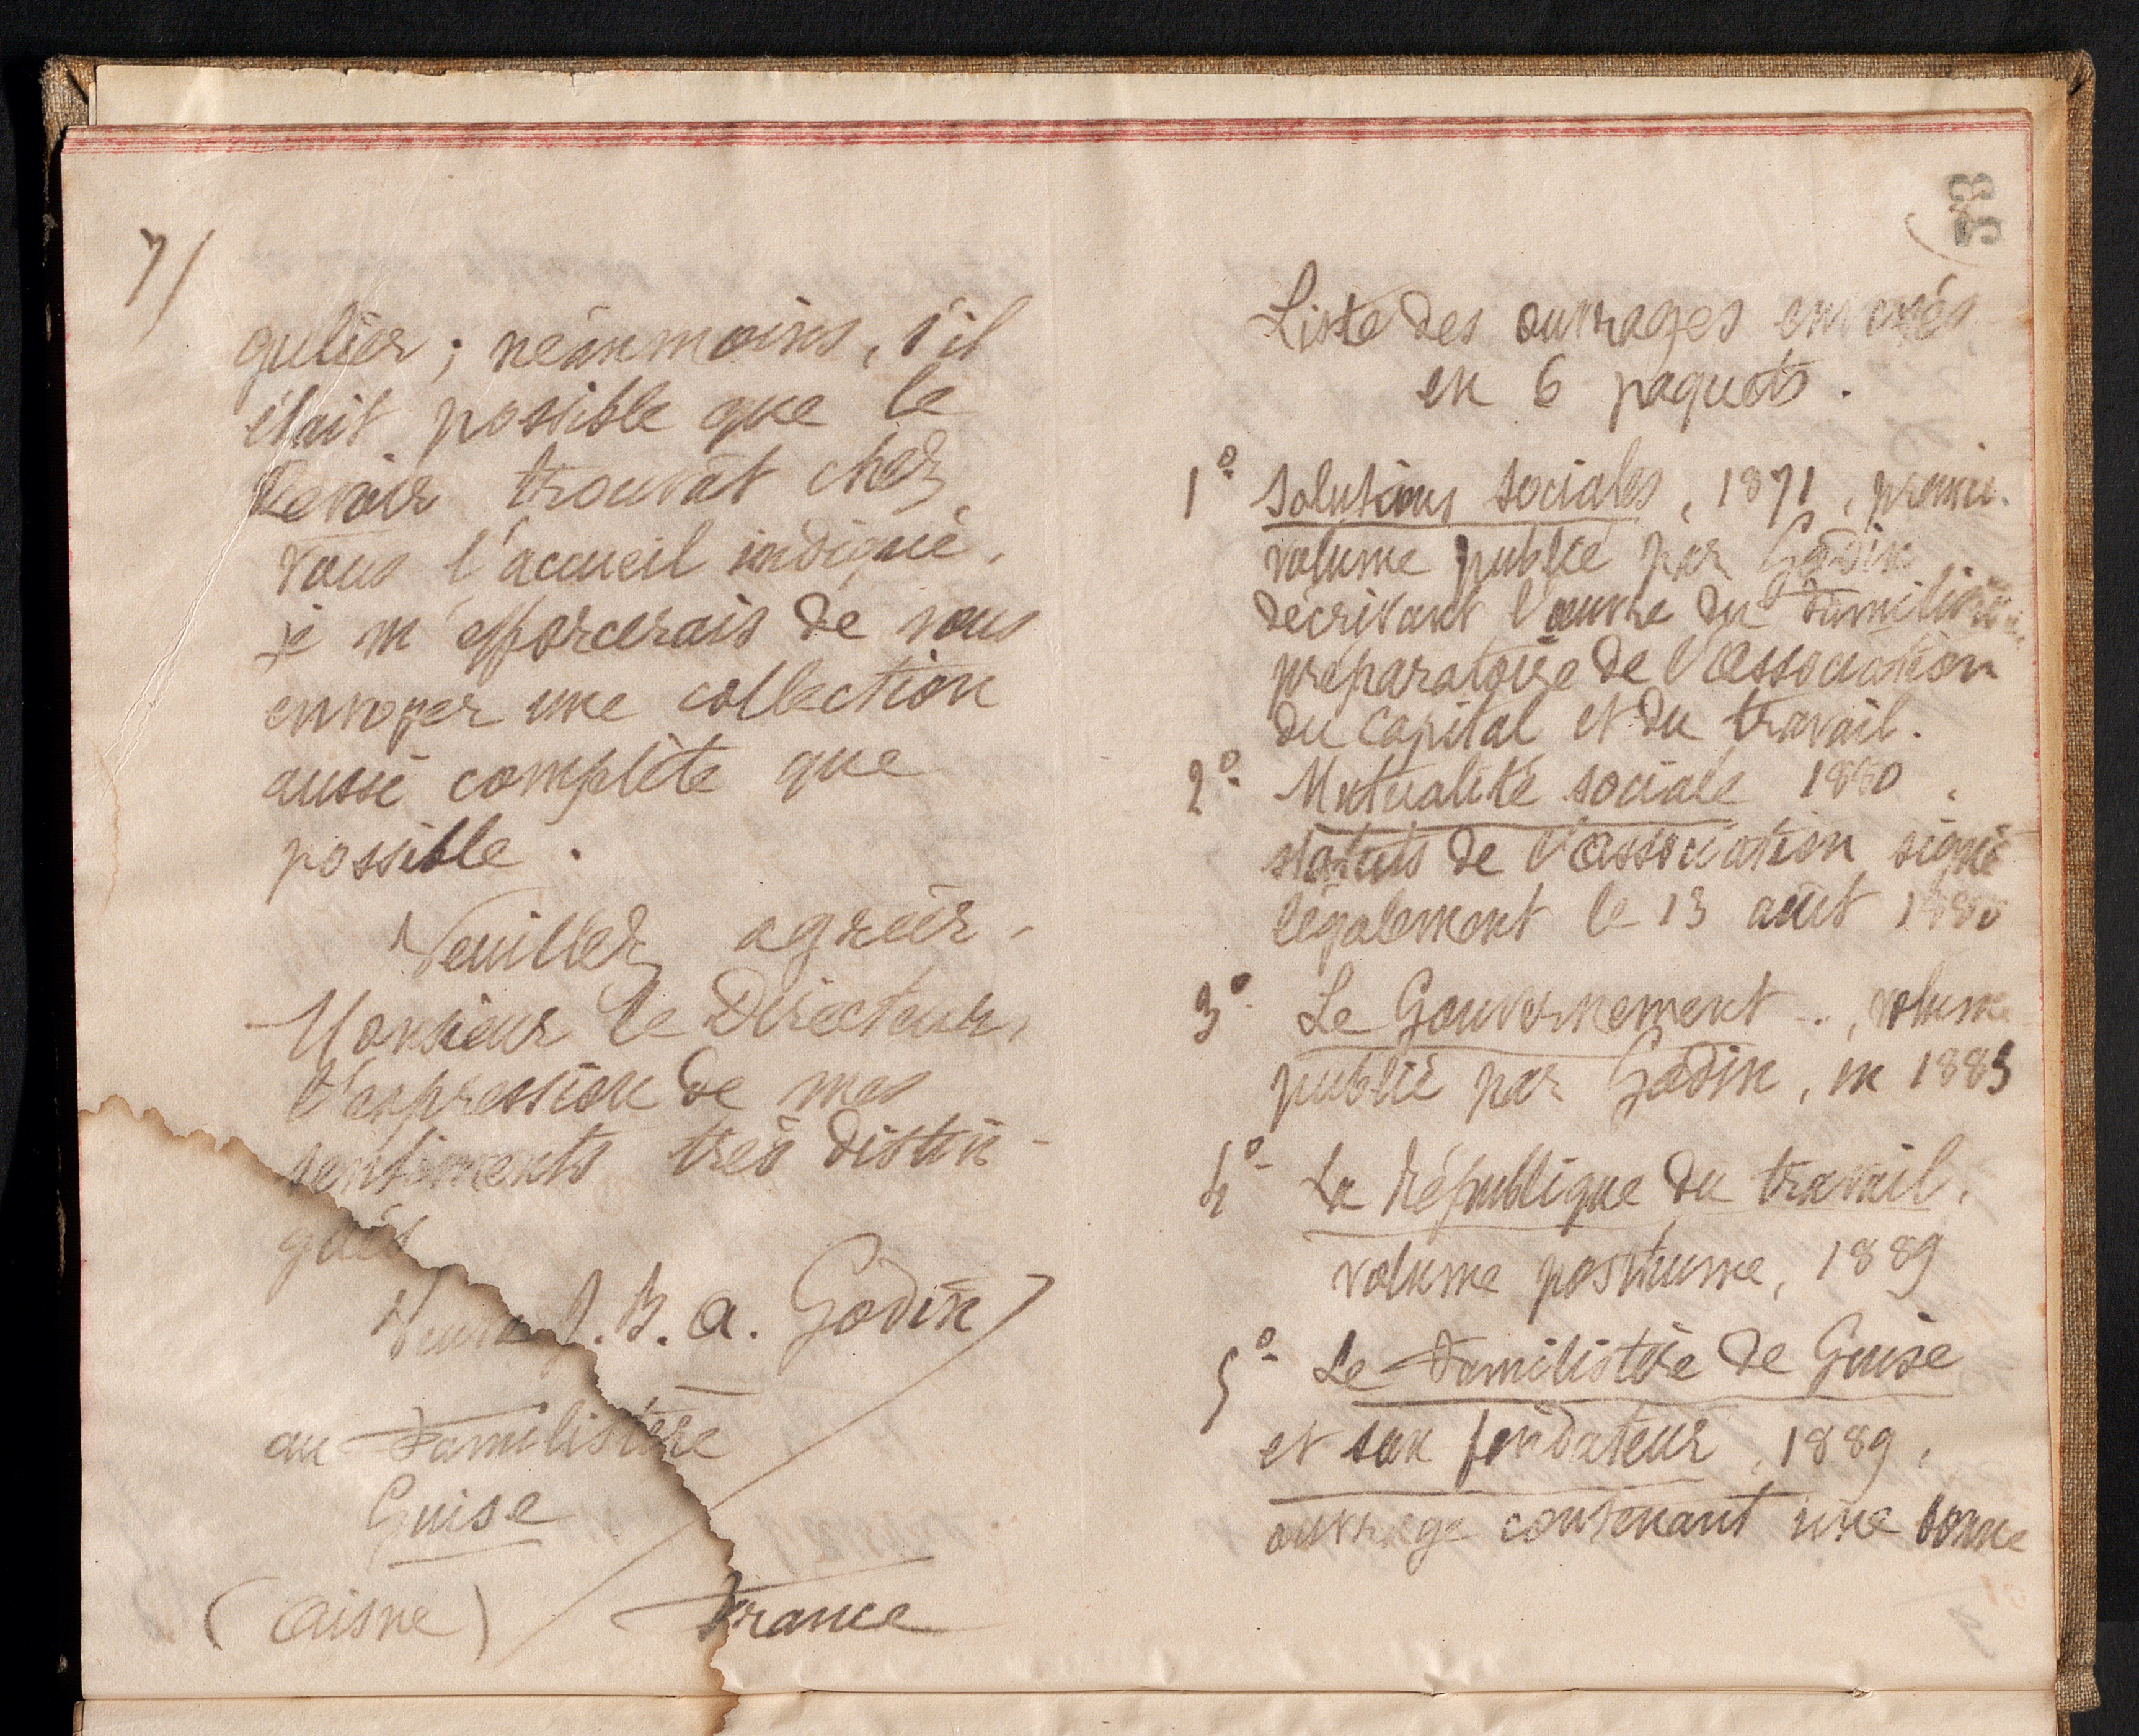 7/
gulier ; néanmoins, s'il
était possible que le
Devoir trouvât chez
vous l'accueil indiqué,
je m'efforcerais de vous
envoyer une collection
aussi complète que
possible.
Veuillez agréer,
Monsieur le Directeur,
l'expression de mes
sentiments très distin-
gués
Veuve J. B. A. Godin
au Familistère
Guise
(Aisne) France
33
Liste des ouvrages envoyés
en 6 paquets.
1º Solutions sociales, 1871, premier
volume publié par Godin
décrivant l'œuvre du Familistère
préparatoire de l'association
du capital et du travail.
2º Mutualité sociale 1880,
statuts de l'association signé
légalement le 13 août 1880
3º Le Gouvernement .., volume
publié par Godin, en 1883
4º La République du travail,
volume posthume, 1889
5º Le Familistère de Guise
et son fondateur, 1889,
ouvrage contenant une bonne